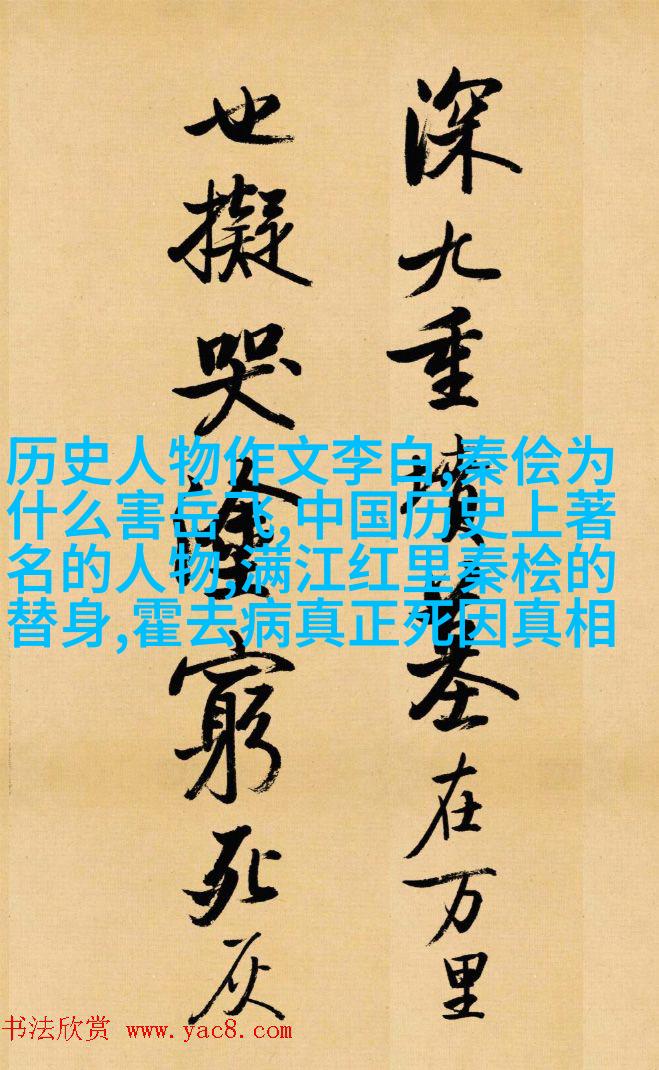 深九重墳墓在万里
也擬哭塗窮死灰
历史人物作文李白,秦侩为
什么害岳飞,中国历史上著
名的人物,满江红里秦桧的
替身,霍去病真正死因真相
书法欣赏 www.yac8.com